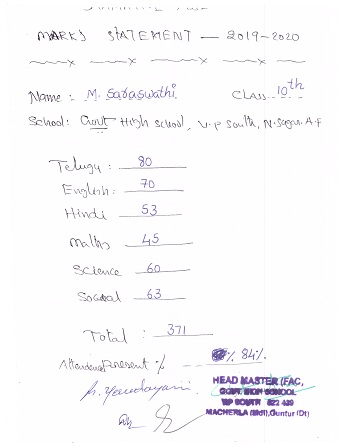 MARKS STATEMENT — 2019-2020
Name : M. Saraswathi CLASS 10th
School: Govt High school, V.P South, N.Sagar. A.P
Telugu : 80
English: 70
Hindi 53
Maths 45
Science 60
Social 63
Total : 371
Attendance present % -- % 84%.
HEAD MASTER (FAC,
GOVT. HIGH SCHOOL
VP SOUTH 522 439
MACHERLA (Mdl), Guntur (Dt)